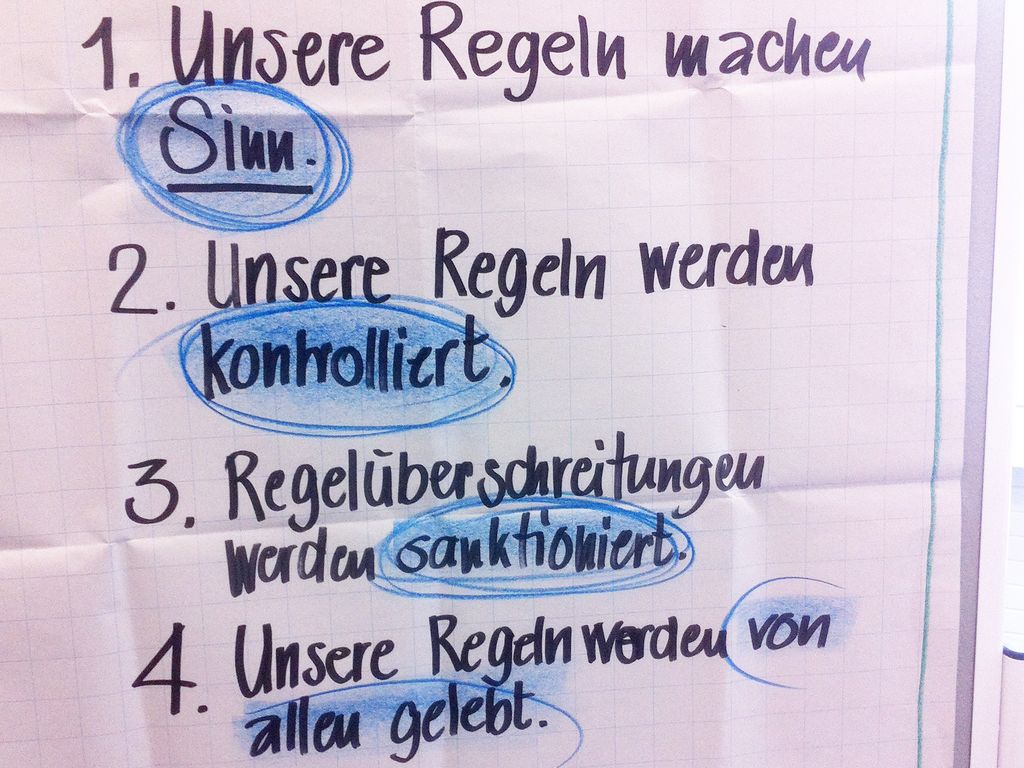 1. Unsere Regeln machen
Sinn.
2. Unsere Regeln werden
kontrolliert.
3. Regelüberschreitungen
werden sanktioniert.
4. Unsere Regeln werden von
allen gelebt.